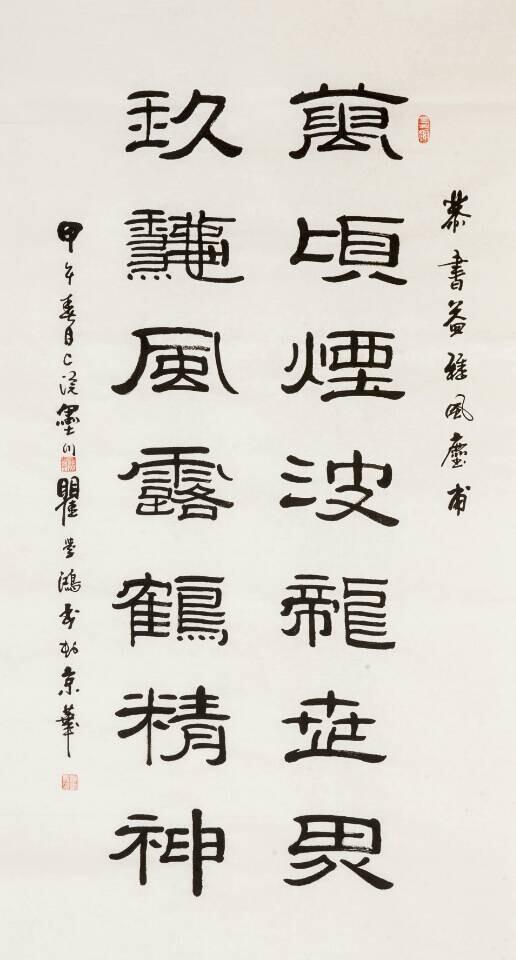 書益 風塵甫
萬頃煙波龍世界
玖 風露鶴精神
甲午春月上浣墨川瞿 鴻書於京華